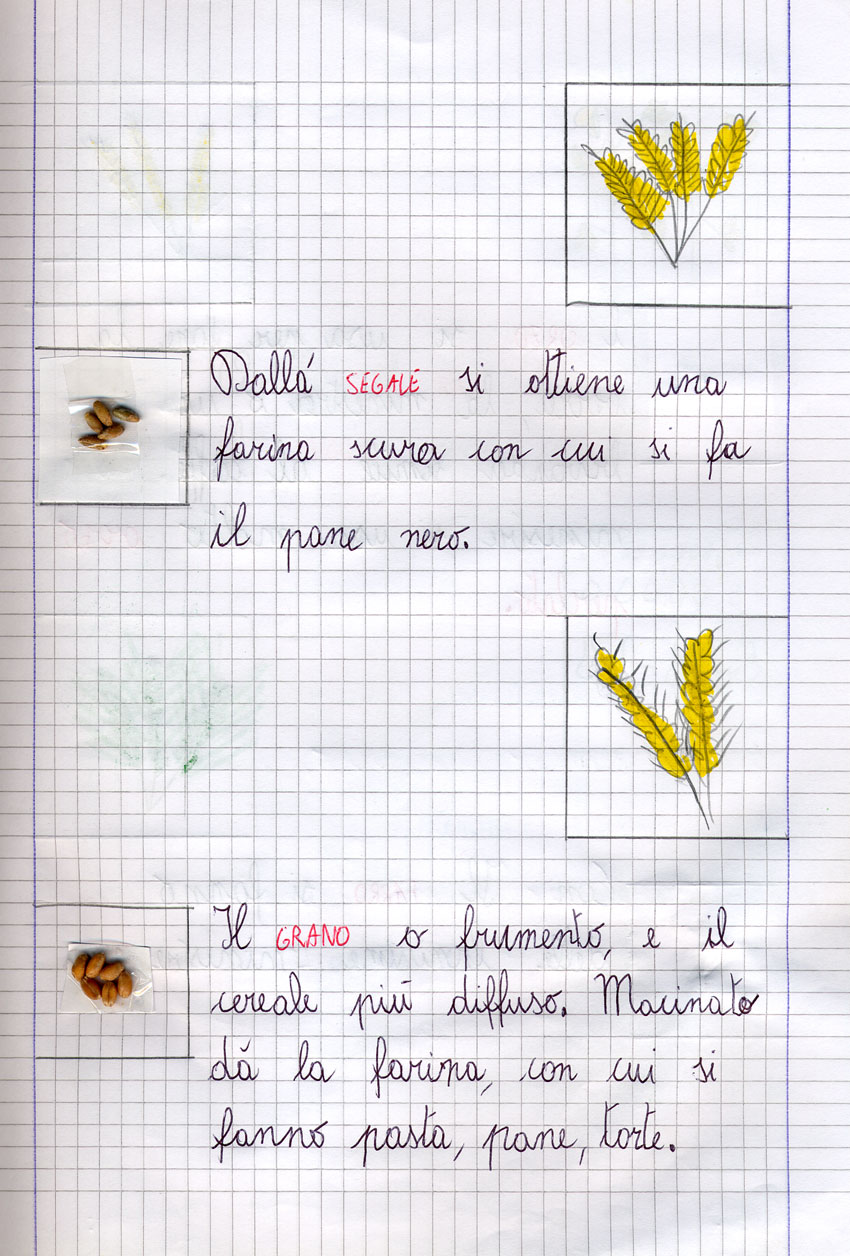 Dallá SEGALE si ottiene una
farina scura con cui si fa
il pane nero.
Il GRANO o frumento, e il
cereale piú diffuso. Macinato
dá la farina, con cui si
fanno pasta, pane, torte.